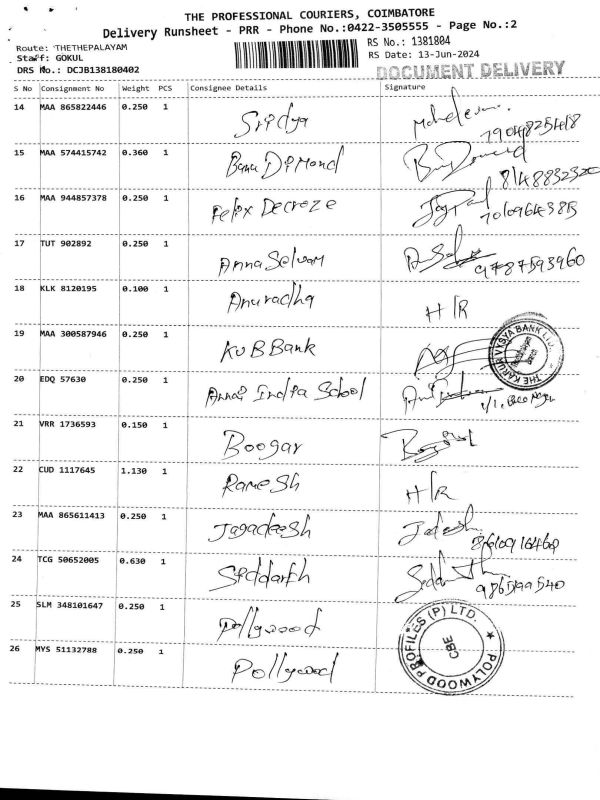 THE PROFESSIONAL COURIERS, COIMBATORE
Delivery Runsheet - PRR - Phone No.:0422-3505555 - Page No.:2
Route: THETHEPALAYAM
Staff: GOKUL
DRS No.: DCJB138180402
RS No.: 1381804
RS Date: 13-Jun-2024
DOCUMENT DELIVERY
S No Consignment No Weight PCS Consignee Details Signature
14 MAA 865822446 0.250 1 Sridya
7904825418
15 MAA 574415742 0.360 1 Banu Dimond
8148832320
16 MAA 944857378 0.250 1 Felix Decroze
17 TUT 902892 0.250 1 Anna Selvam
9787593960
18 KLK 8120195 0.100 1 Anuradha H/R
19 MAA 300587946 0.250 1 KVB Bank
THE KARUR VYSYA BANK LTD.
20 EDQ 57630 0.250 1 Annai India School
21 VRR 1736593 0.150 1 Boogar
22 CUD 1117645 1.130 1 Ramesh H/R
23 MAA 865611413 0.250 1 Jagadeesh
24 TCG 50652005 0.630 1 Siddarth
25 SLM 348101647 0.250 1 Pollywood
POLYWOOD PROFILES (P) LTD. CBE
26 MYS 51132788 0.250 1 Pollywood